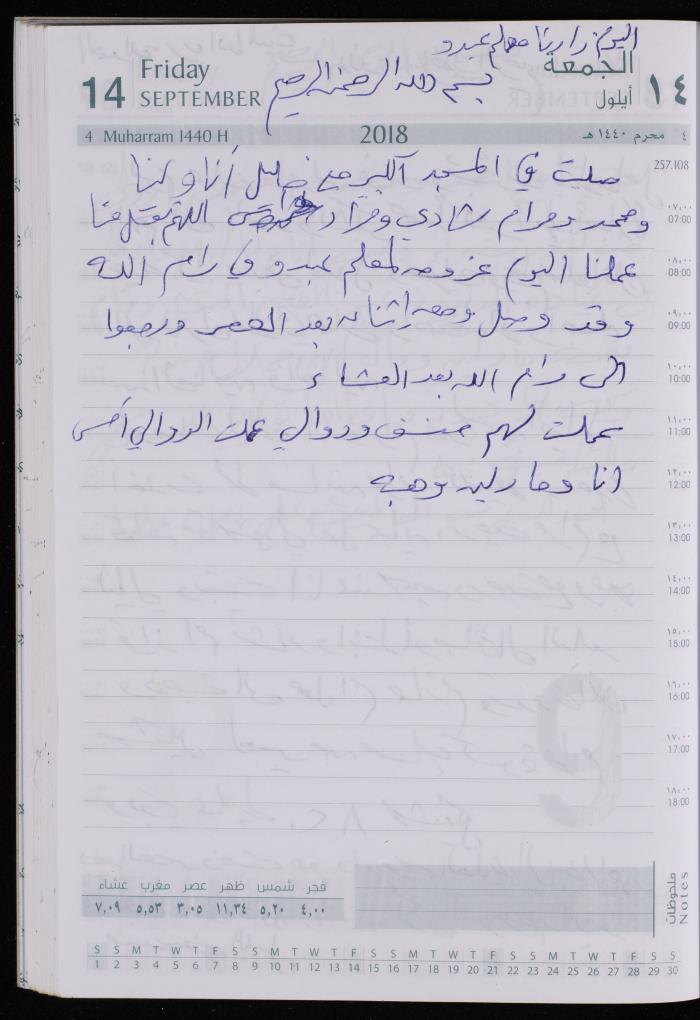 اليوم زارينا معلم عبدو
14 Friday SEPTEMBER
الجمعة ١٤ أيلول
بسم الله الرحمن الرحيم
4 Muharram 1440 H 2018 ٤ محرم ١٤٤٠ هـ
257.108
صليت في المسجد الكبير مع خليل أنا ولنا
ومحمد ومرام شادي ومراد اللهم تقبل منا
عملنا اليوم عزومه لمعلم عبدو في رام الله
وقد وصل ومعه إثنان بعد العصر ورجعوا
الى رام الله بعد العشاء
عملت لهم منسف ودوالي عملت الدوالي أمس
انا ومارلين وهبه
٠٧:٠٠ 07:00
٠٨:٠٠ 08:00
٠٩:٠٠ 09:00
١٠:٠٠ 10:00
١١:٠٠ 11:00
١٢:٠٠ 12:00
١٣:٠٠ 13:00
١٤:٠٠ 14:00
١٥:٠٠ 15:00
١٦:٠٠ 16:00
١٧:٠٠ 17:00
١٨:٠٠ 18:00
ملحوظات Notes
فجر شمس ظهر عصر مغرب عشاء
٤,٠٠ ٥,٢٠ ١١,٣٤ ٣,٠٥ ٥,٥٣ ٧,٠٩
S S M T W T F S S M T W T F S S M T W T F S S M T W T F S S
1 2 3 4 5 6 7 8 9 10 11 12 13 14 15 16 17 18 19 20 21 22 23 24 25 26 27 28 29 30